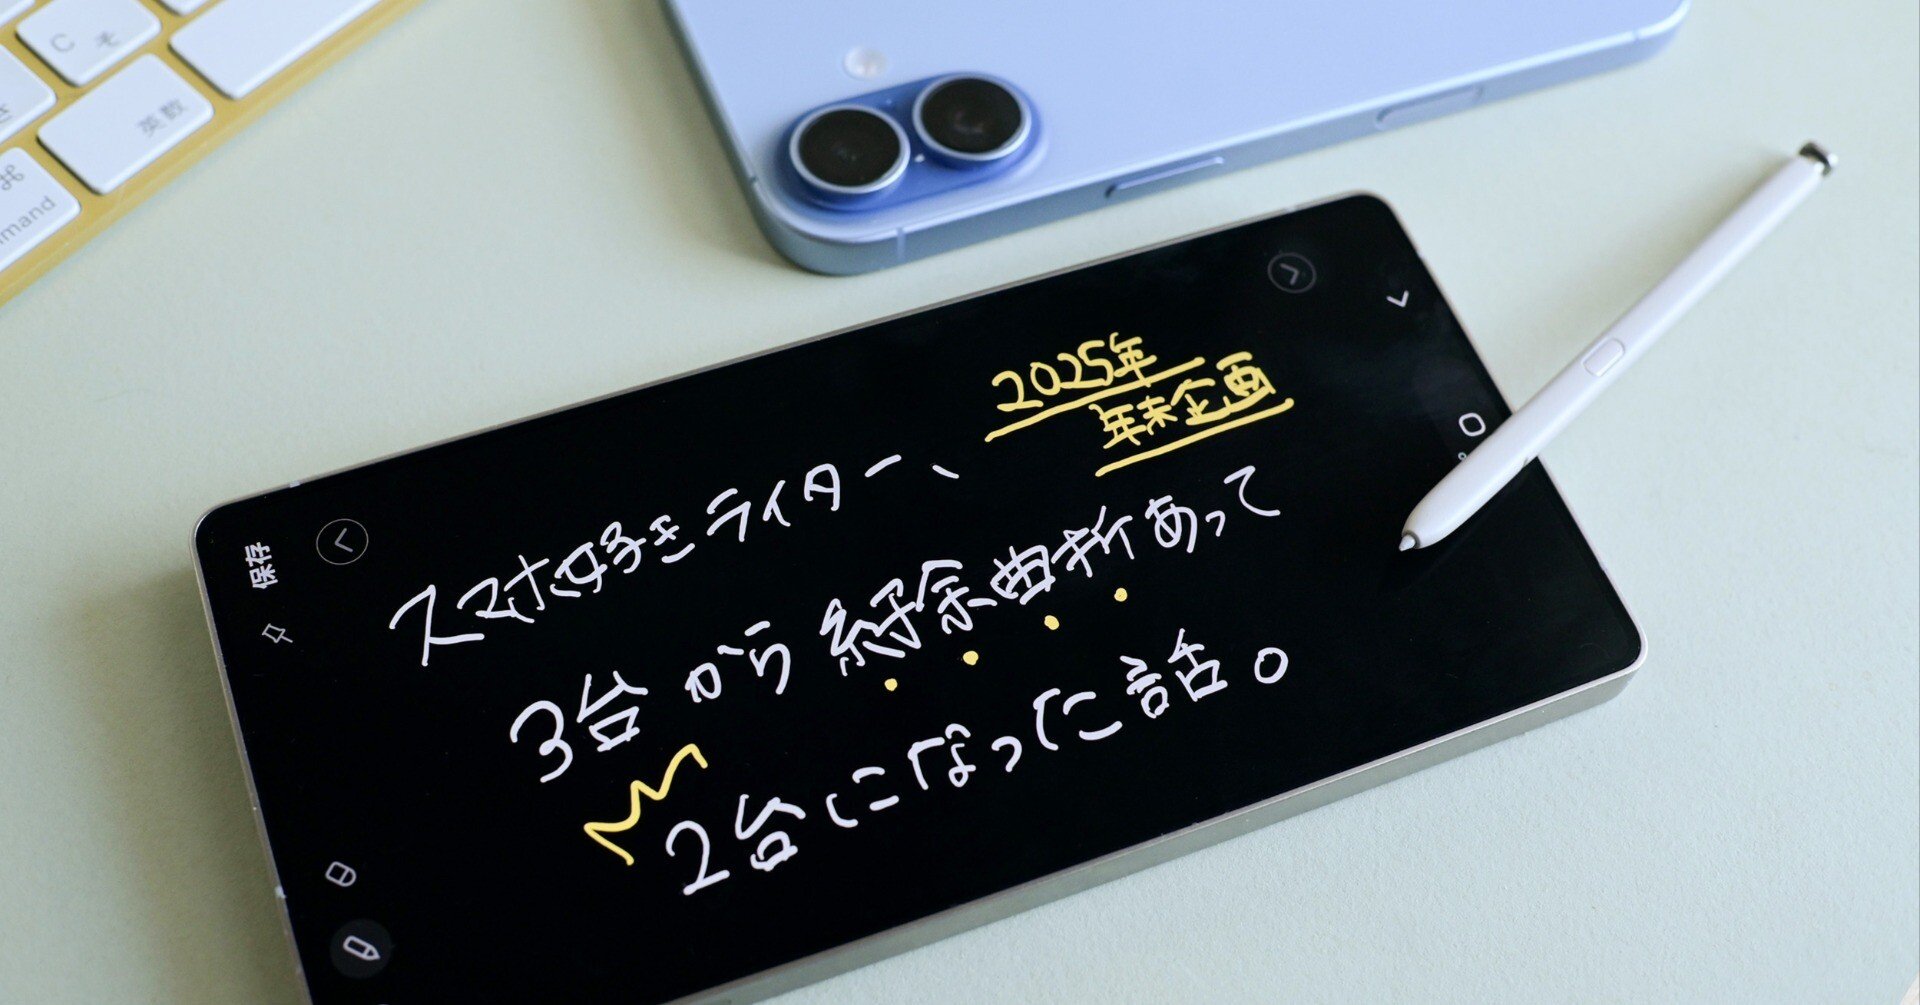 C そ
英数
⌘
mmand
2025年
年末企画
スマホ好きライター、
3台から紆余曲折あって
2台になった話。
保存